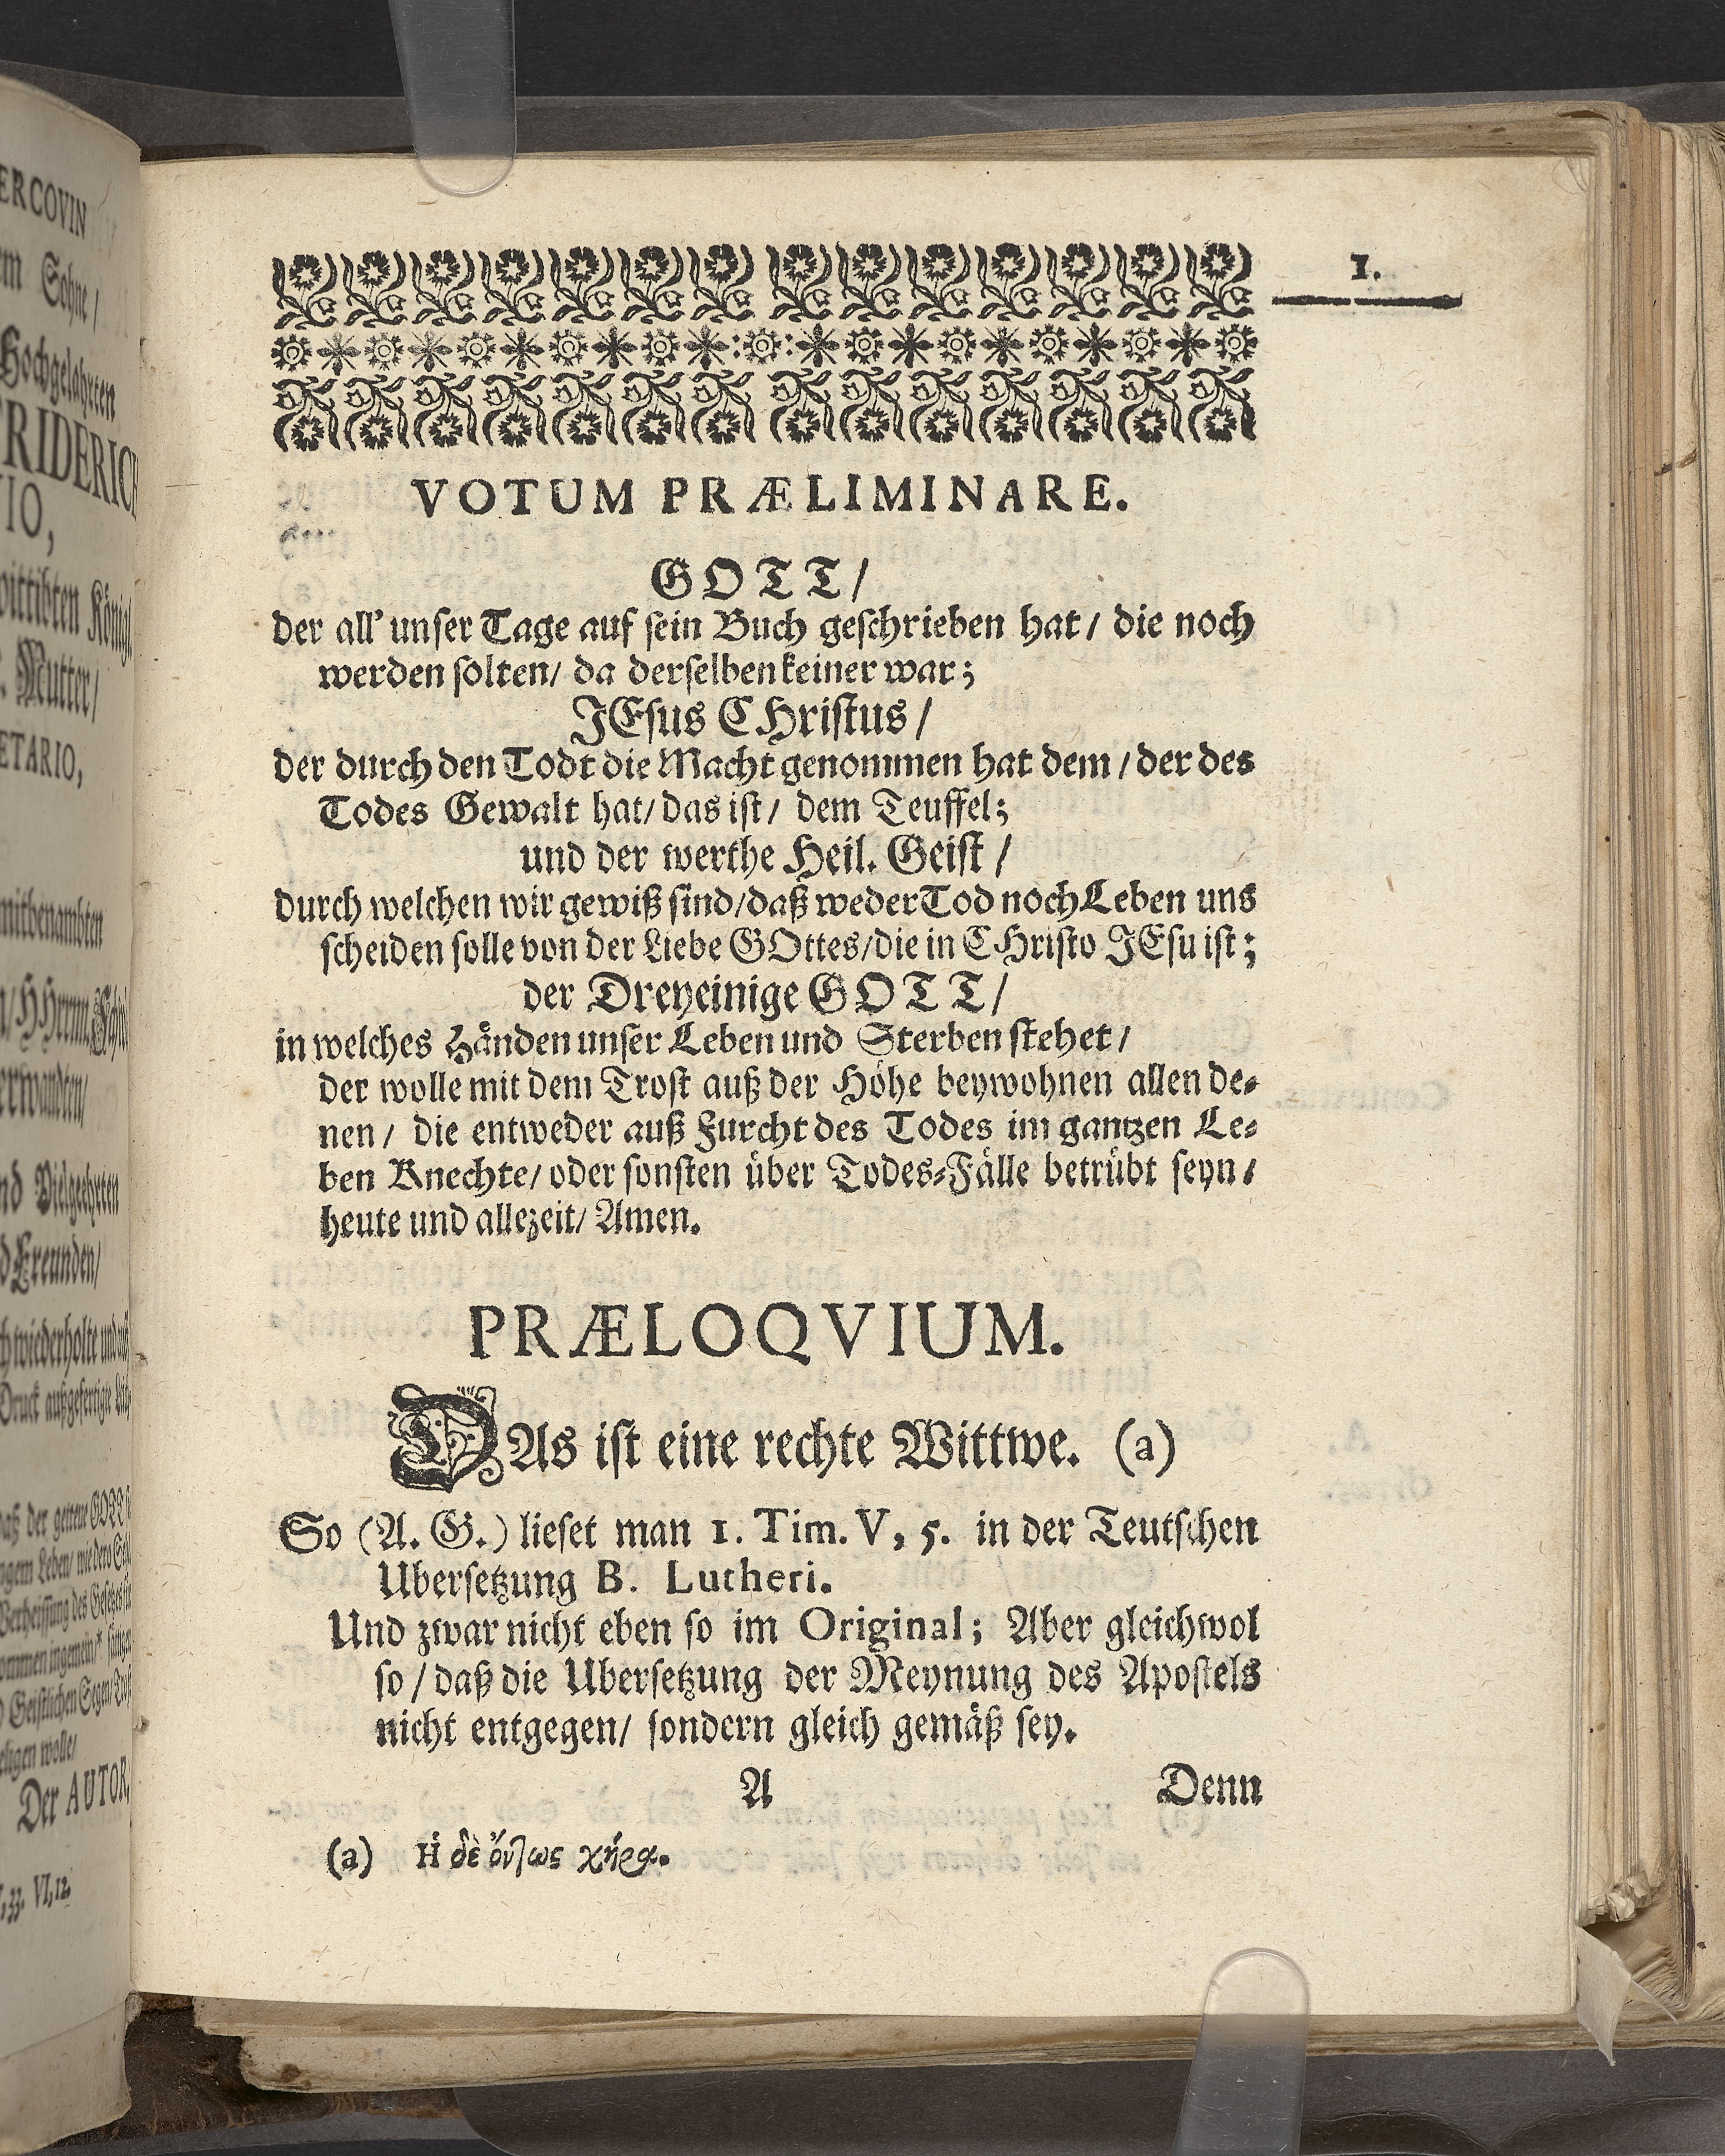 ERCOVIN
Sohne /
Hochgelahrten
RIDERICH
IO,
Königl.
Mutter /
ETARIO,
mitbenambten
Freunden /
wiederholte
Druck außgefertigte
Der AUTOR,
33. VI, 12.
1.
VOTUM PRÆLIMINARE.
GOTT /
der all' unser Tage auf sein Buch geschrieben hat / die noch
werden solten / da derselben keiner war;
JEsus CHristus /
der durch den Todt die Macht genommen hat dem / der des
Todes Gewalt hat / das ist / dem Teuffel;
und der werthe Heil. Geist /
durch welchen wir gewiß sind / daß weder Tod noch Leben uns
scheiden solle von der Liebe GOttes / die in CHristo JEsu ist;
der Dreyeinige GOTT /
in welches Händen unser Leben und Sterben stehet /
der wolle mit dem Trost auß der Höhe beywohnen allen de-
nen / die entweder auß Furcht des Todes im gantzen Le-
ben Knechte / oder sonsten über Todes-Fälle betrübt seyn /
heute und allezeit / Amen.
PRÆLOQVIUM.
DAs ist eine rechte Wittwe. (a)
So (A. G.) lieset man 1. Tim. V, 5. in der Teutschen
Ubersetzung B. Lutheri.
Und zwar nicht eben so im Original; Aber gleichwol
so / daß die Ubersetzung der Meynung des Apostels
nicht entgegen / sondern gleich gemäß sey.
A Denn
(a) Ἡ δὲ ὄντως χήρα.